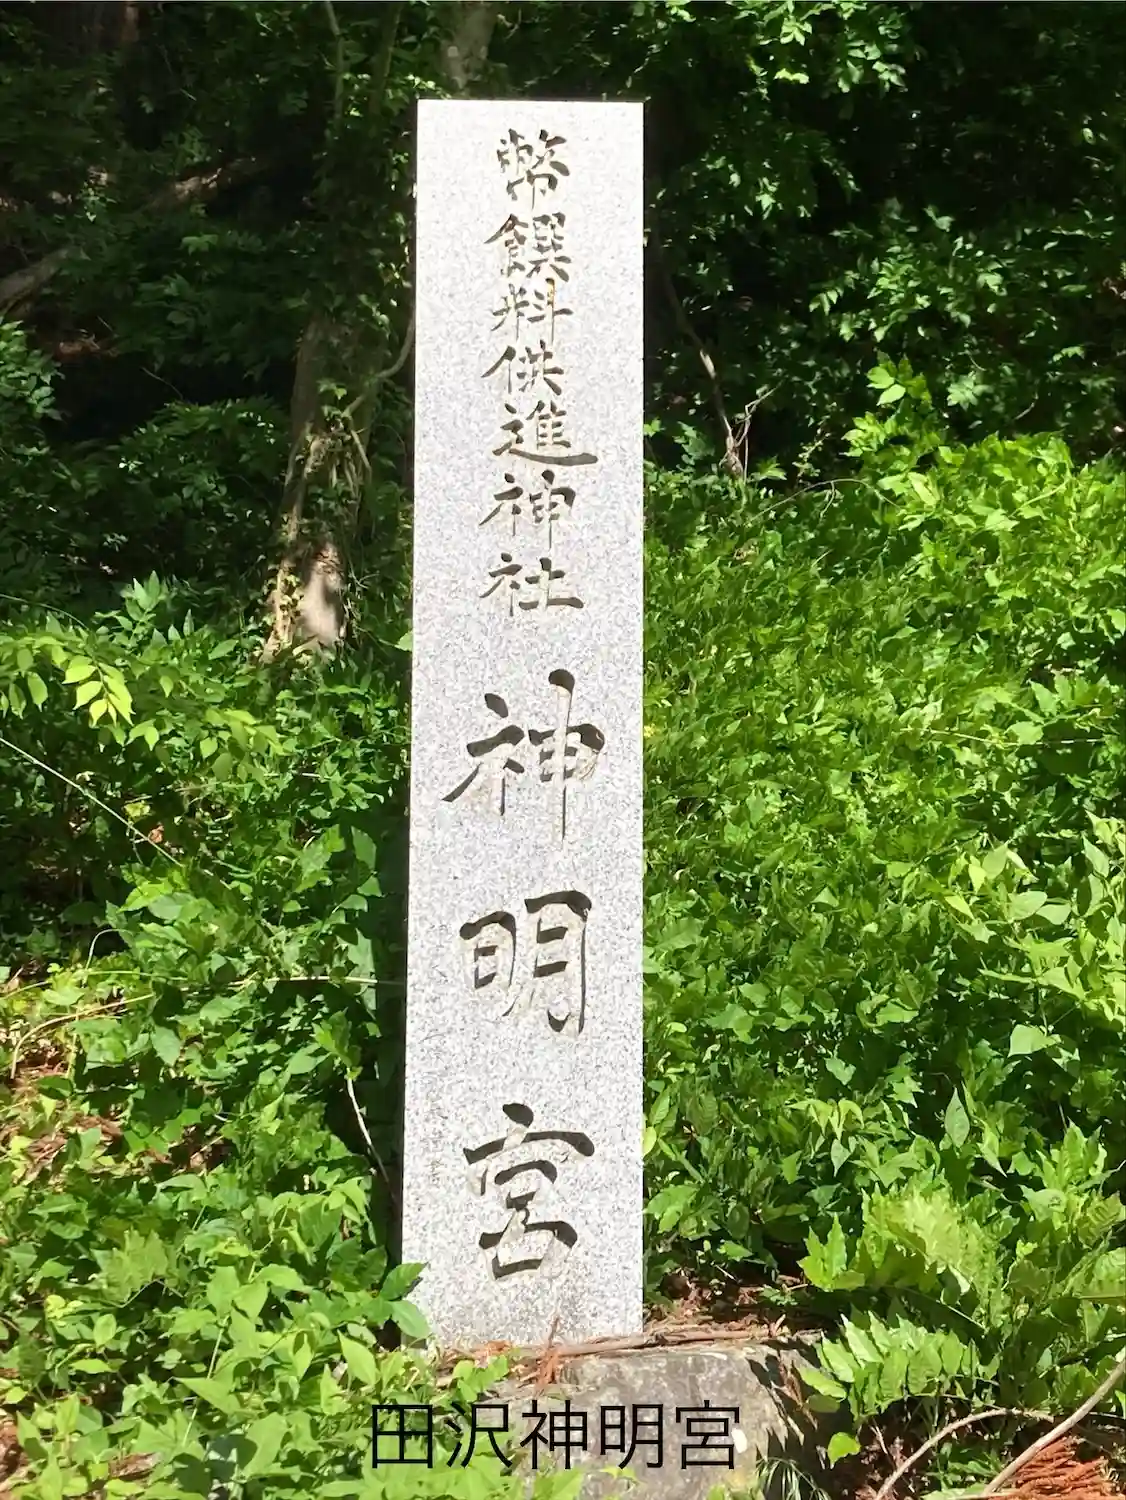 幣饌料供進神社 神明宮
田沢神明宮